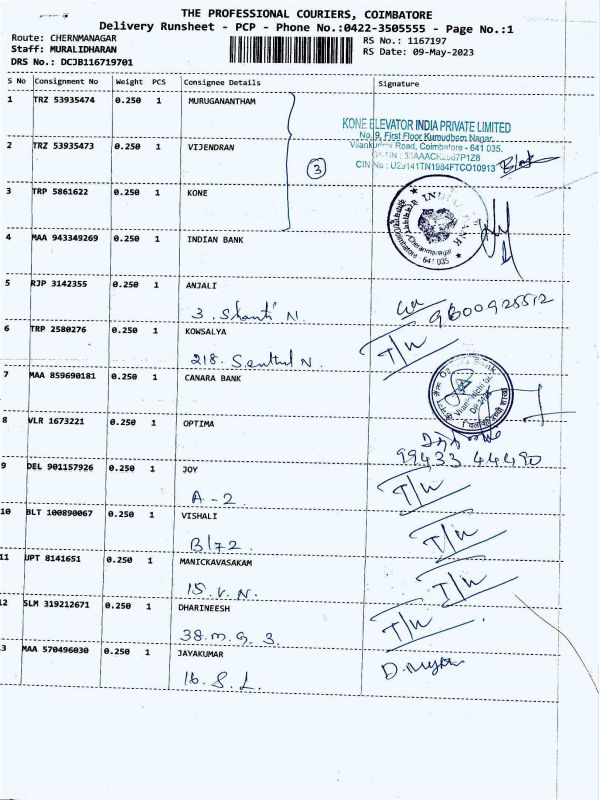 THE PROFESSIONAL COURIERS, COIMBATORE
Delivery Runsheet - PCP - Phone No.:0422-3505555 - Page No.:1
Route: CHERNMANAGAR
RS No.: 1167197
Staff: MURALIDHARAN
RS Date: 09-May-2023
DRS No.: DCJB116719701
S No Consignment No Weight PCS Consignee Details Signature
1 TRZ 53935474 0.250 1 MURUGANANTHAM
KONE ELEVATOR INDIA PRIVATE LIMITED
No. 9, First Floor Kumudbam Nagar,
Vilankurichi Road, Coimbatore - 641 035.
CIN No : U29141TN1984FTCO10913
2 TRZ 53935473 0.250 1 VIJENDRAN
3
3 TRP 5861622 0.250 1 KONE
INDIAN BANK
Cheranmanagar
641 035
4 MAA 943349269 0.250 1 INDIAN BANK
5 RJP 3142355 0.250 1 ANJALI
3. Shanti N. 9600925512
6 TRP 2580276 0.250 1 KOWSALYA
218. Senthil N. T/W
7 MAA 859690181 0.250 1 CANARA BANK
8 VLR 1673221 0.250 1 OPTIMA
99433 44490
9 DEL 901157926 0.250 1 JOY
A-2. T/W
10 BLT 100890067 0.250 1 VISHALI
B/72. T/W
11 UPT 8141651 0.250 1 MANICKAVASAKAM
15. V. N. T/W
12 SLM 319212671 0.250 1 DHARINEESH
38. M. G. 3. T/W
3 MAA 570496030 0.250 1 JAYAKUMAR
16. S. L.